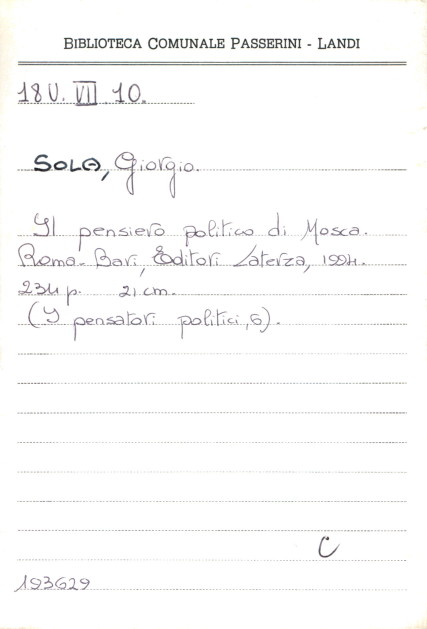 BIBLIOTECA COMUNALE PASSERINI - LANDI
18 U. VII 10.
SOLA, Giorgio.
Il pensiero politico di Mosca.
Roma-Bari, Editori Laterza, 1994.
234 p. 21 cm.
(I pensatori politici, 6).
C
193629